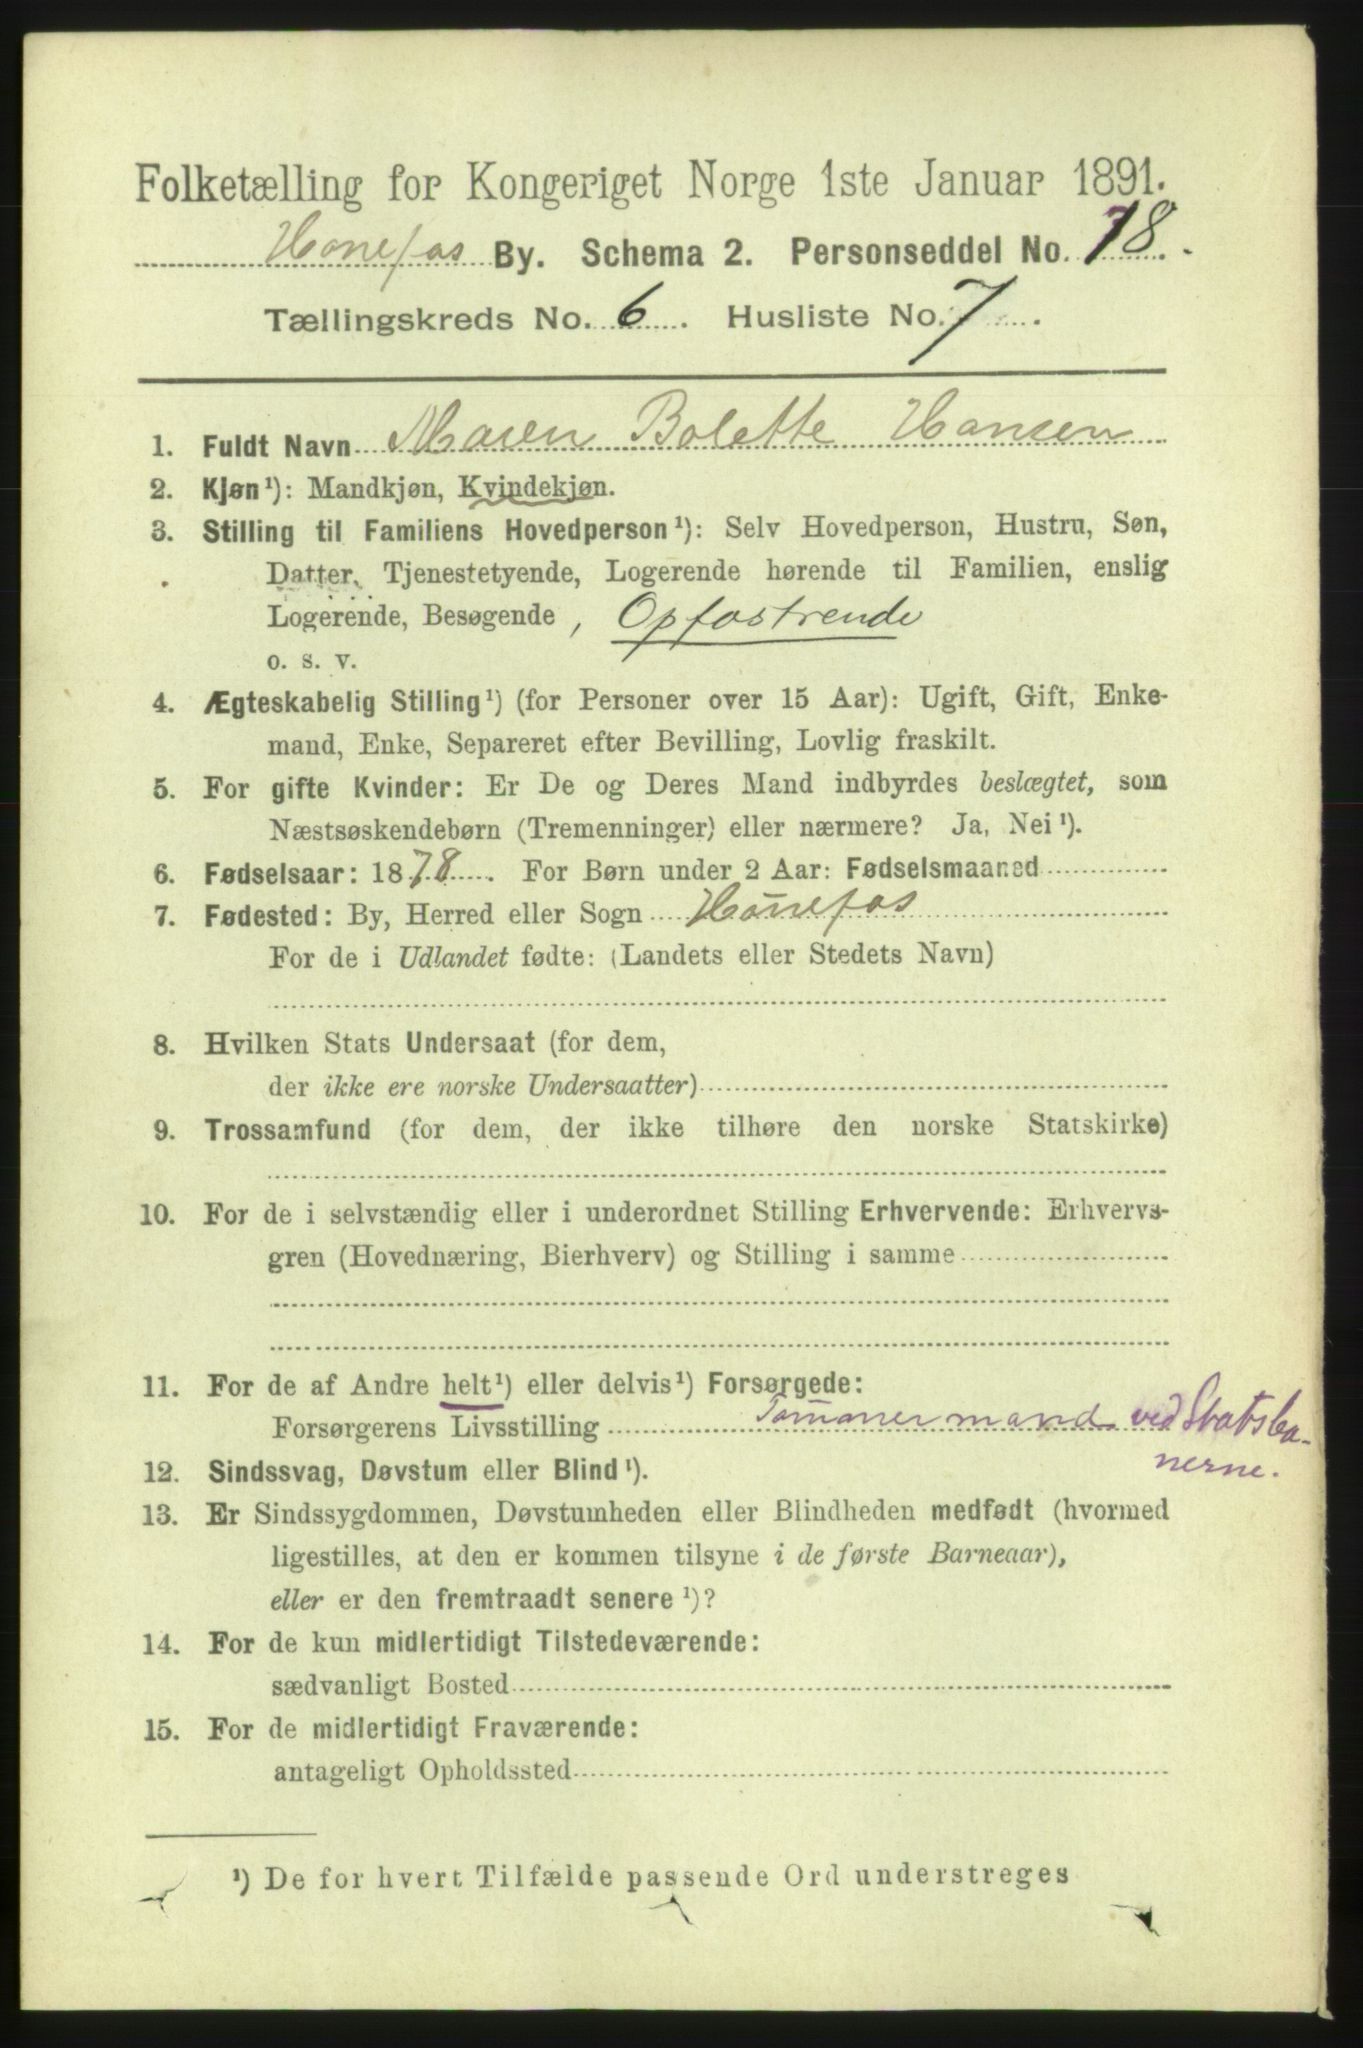 Folketælling for Kongeriget Norge 1ste Januar 1891.
Honefos By. Schema 2. Personseddel No. 18.
Tællingskreds No. 6. Husliste No. 7.
1. Fuldt Navn Maren Bolette Hansen
2. Kjøn¹): Mandkjøn, Kvindekjøn.
3. Stilling til Familiens Hovedperson¹): Selv Hovedperson, Hustru, Søn,
Datter, Tjenestetyende, Logerende hørende til Familien, enslig
Logerende, Besøgende , Opfostrende
o. s. v.
4. Ægteskabelig Stilling¹) (for Personer over 15 Aar): Ugift, Gift, Enke-
mand, Enke, Separeret efter Bevilling, Lovlig fraskilt.
5. For gifte Kvinder: Er De og Deres Mand indbyrdes beslægtet, som
Næstsøskendebørn (Tremenninger) eller nærmere? Ja, Nei¹).
6. Fødselsaar: 1878. For Børn under 2 Aar: Fødselsmaaned
7. Fødested: By, Herred eller Sogn Hönefos
For de i Udlandet fødte: (Landets eller Stedets Navn)
8. Hvilken Stats Undersaat (for dem,
der ikke ere norske Undersaatter)
9. Trossamfund (for dem, der ikke tilhøre den norske Statskirke)
10. For de i selvstændig eller i underordnet Stilling Erhvervende: Erhvervs-
gren (Hovednæring, Bierhverv) og Stilling i samme
11. For de af Andre helt¹) eller delvis¹) Forsørgede:
Forsørgerens Livsstilling Tømmermand ved Statsba-
nerne.
12. Sindssvag, Døvstum eller Blind¹).
13. Er Sindssygdommen, Døvstumheden eller Blindheden medfødt (hvormed
ligestilles, at den er kommen tilsyne i de første Barneaar),
eller er den fremtraadt senere¹)?
14. For de kun midlertidigt Tilstedeværende:
sædvanligt Bosted
15. For de midlertidigt Fraværende:
antageligt Opholdssted
¹) De for hvert Tilfælde passende Ord understreges